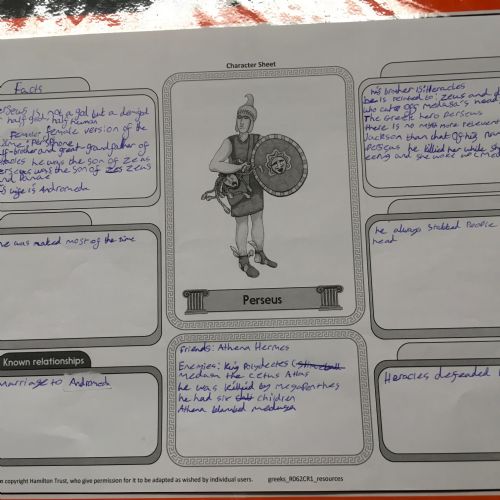 Character Sheet
Facts
Perseus is not a god but a demigod
half god half human
female version of the
name: Persephone
half-brother and great-grandfather of
he was the son of Zeas
Perseus was the son of Zeus
and Danae
his wife is Andromeda
he was naked most of the time
Known relationships
marriage to Andromeda
Perseus
Friends: Athena Hermes
Enemies: King Polydectes
Medusa the Cetus Atlas
he was killed by megapenthes
he had six children
Athena blamed medusa
his brother is Heracles
he is related to: Zeus and
who cut off medusa's head
The Greek hero Perseus
there is no more relevent
Jackson than that of his
Perseus he killed her while she
and she woke up
he always stabbed People
head
Heracles defeated
copyright Hamilton Trust, who give permission for it to be adapted as wished by individual users. greeks_R062CR1_resources